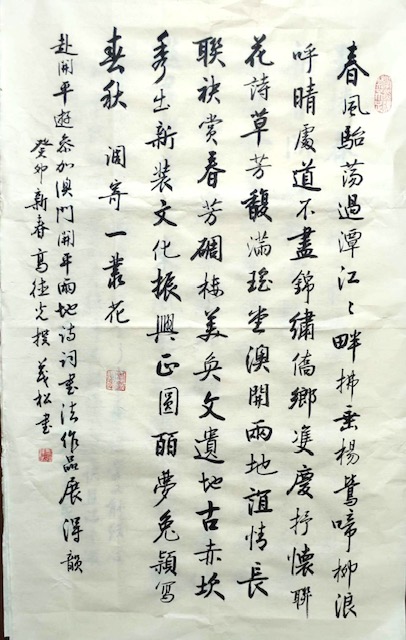 春風駘蕩過潭江〻畔拂垂楊鶯啼柳浪
呼晴處道不盡錦繡僑鄉雙慶抒懷聯
花詩草芳馥滿瑤堂澳開兩地誼情長
聯袂賞春芳碉樓美奐文遺地古赤坎
秀出新裝文化振興正圓丽夢兔穎寫
春秋 調寄一叢花
赴開平遊參加澳門開平兩地詩詞書法作品展得韻
癸卯新春高光撰 松書